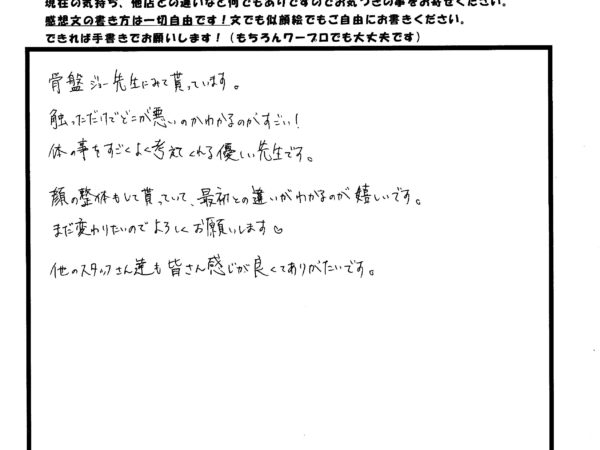 現在の気持ち、他店との違いなど何でもありですのでお気づきの事をお寄せください。
感想文の書き方は一切自由です！文でも似顔絵でもご自由にお書きください。
できれば手書きでお願いします！（もちろんワープロでも大丈夫です）
骨盤ジョー先生にみて貰っています。
触っただけでどこが悪いのかわかるのがすごい！
体の事をすごくよく考えてくれる優しい先生です。
顔の整体もして貰っていて、最初との違いがわかるのが嬉しいです。
まだ変わりたいのでよろしくお願いします♡
他のスタッフさん達も皆さん感じが良くてありがたいです。